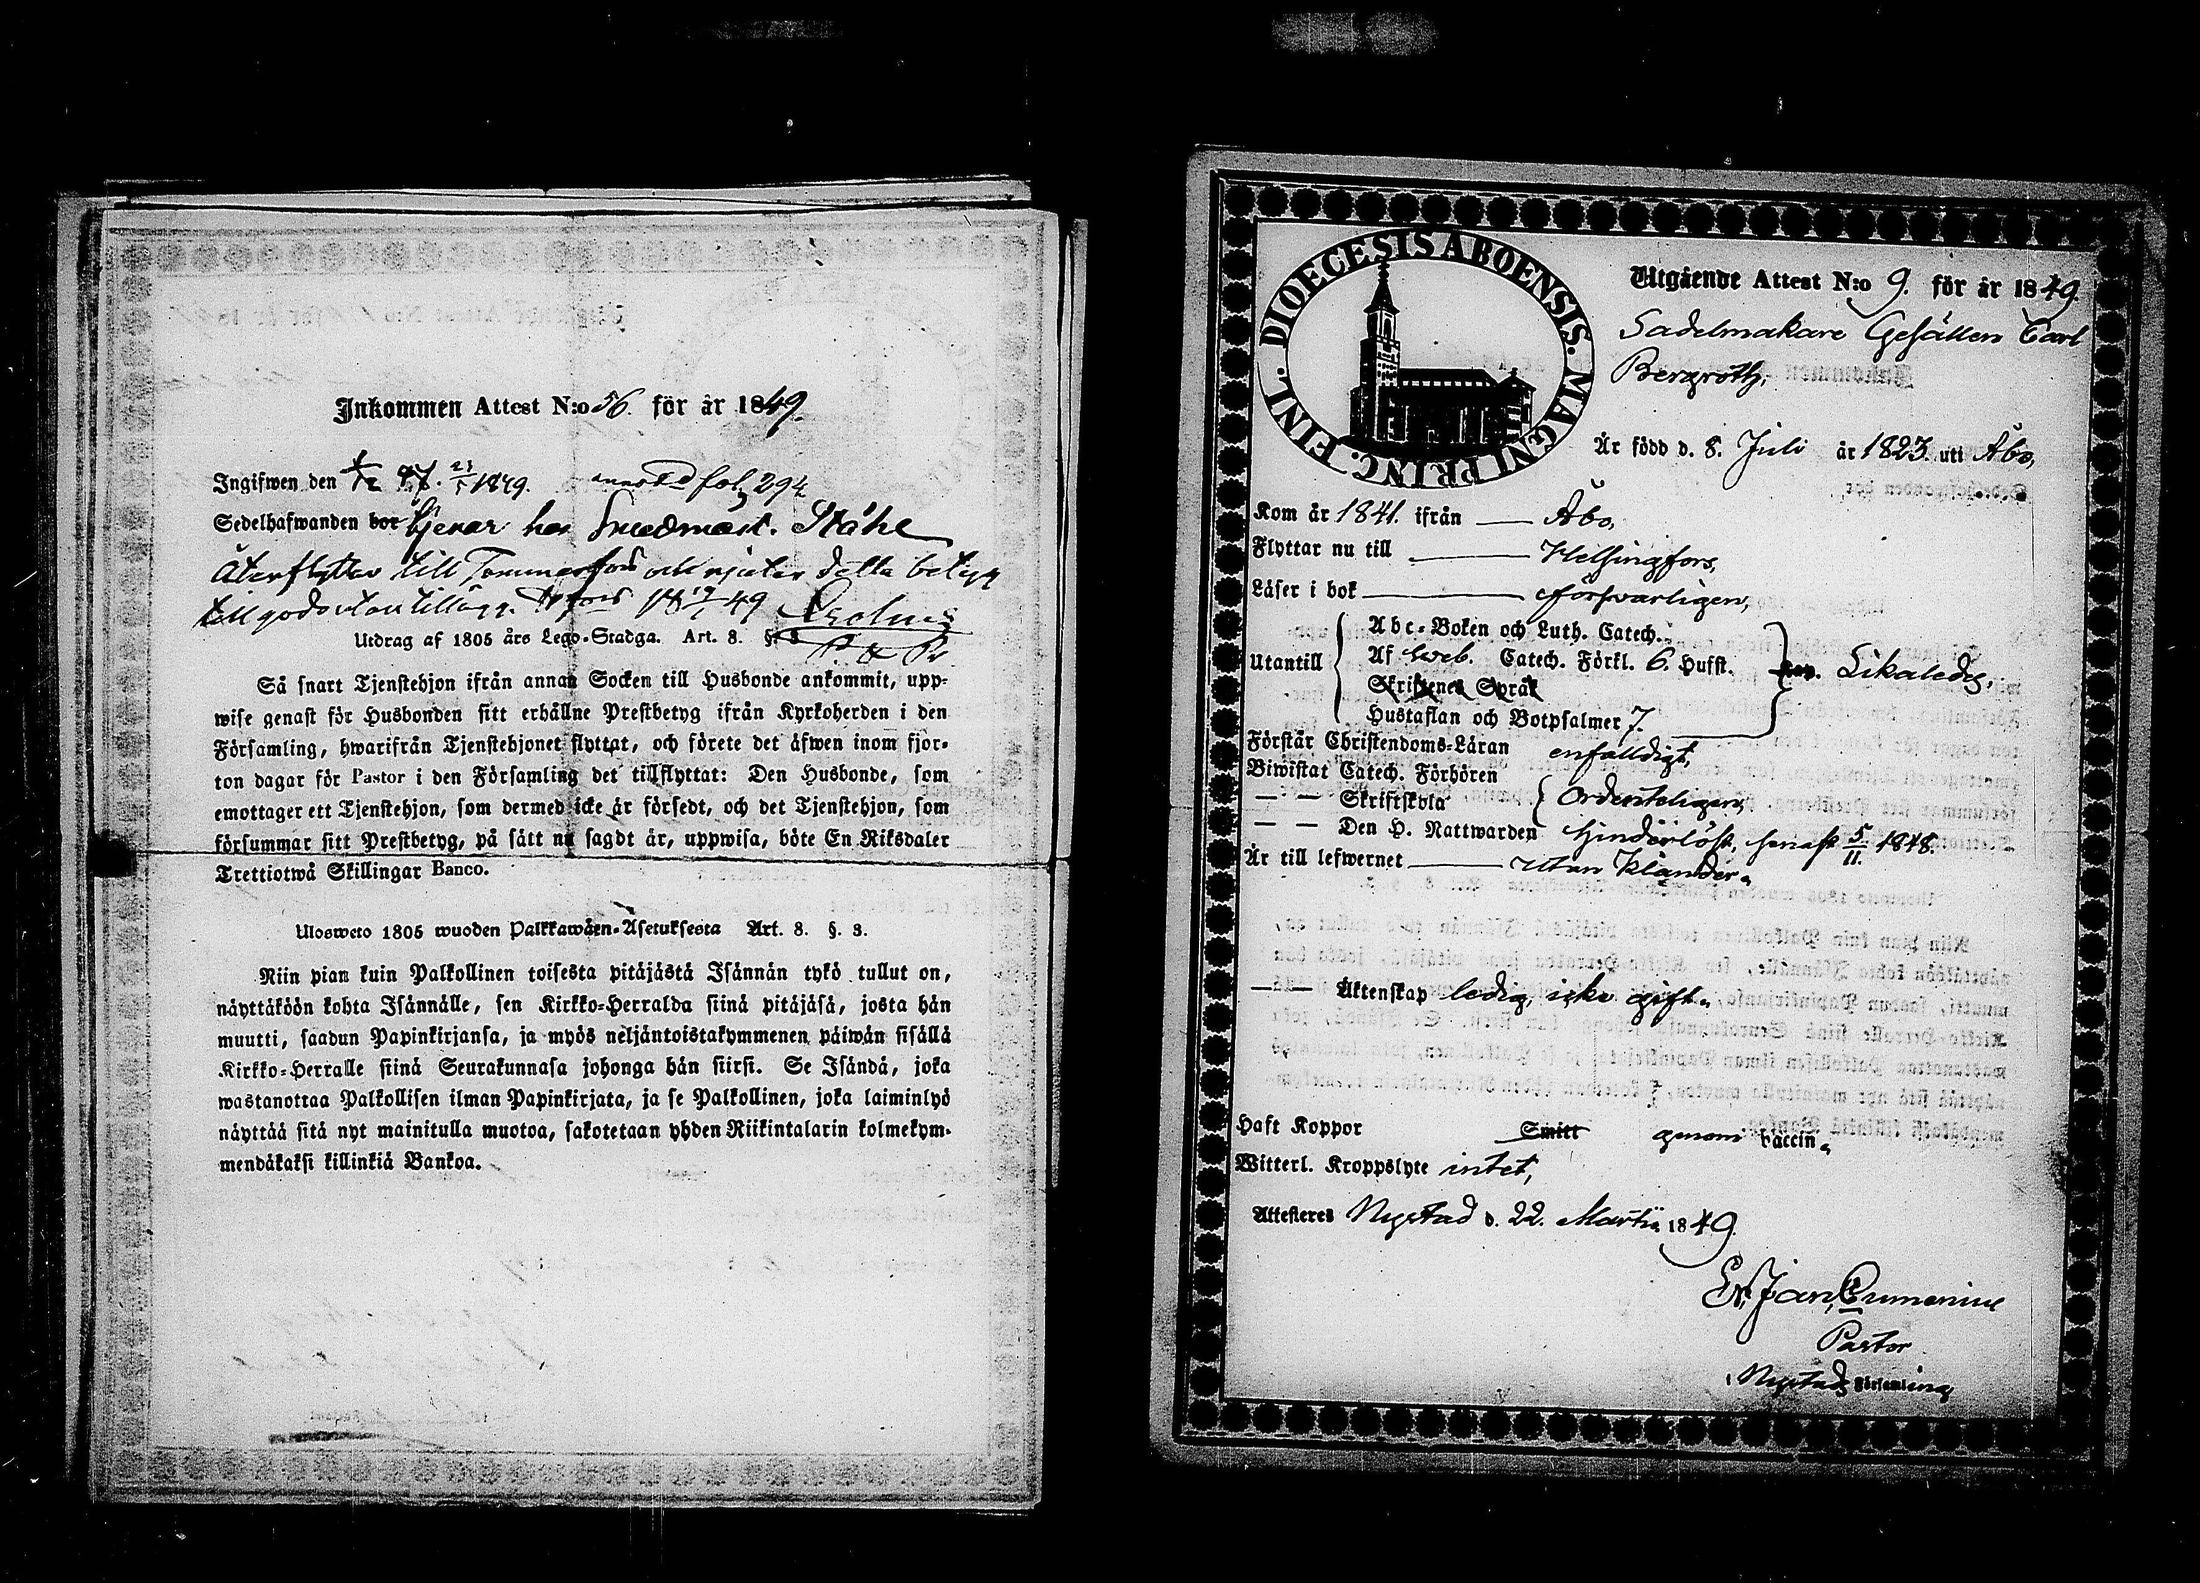 Inkommen Attest N:o 56. för år 1849.
Ingifwen den 47. 1849. fol 294
Sedelhafwanden bor tjenar hos Smedmäst. Ståhle
Återflyttar till Tammerfors och njuter detta betyg
till godo utan tillägg. 18 49
Utdrag af 1805 års Lego-Stadga. Art. 8. § 3
Så snart Tjenstehjon ifrån annan Socken till Husbonde ankommit, upp-
wise genast för Husbonden sitt erhållne Prestbetyg ifrån Kyrkoherden i den
Församling, hwarifrån Tjenstehjonet flyttat, och förete det äfwen inom fjor-
ton dagar för Pastor i den Församling det tillflyttat: Den Husbonde, som
emottager ett Tjenstehjon, som dermed icke är försedt, och det Tjenstehjon, som
försummar sitt Prestbetyg, på sätt nu sagdt är, uppwisa, böte En Riksdaler
Trettiotwå Skillingar Banco.
Ulosweto 1805 wuoden Palkkawäen-Asetuksesta Art. 8. §. 3.
Niin pian kuin Palkollinen toisesta pitäjästä Isännän tykö tullut on,
näyttäköön kohta Isännälle, sen Kirkko-Herralda siinä pitäjäsä, josta hän
muutti, saadun Papinkirjansa, ja myös neljäntoistakymmenen päiwän sisällä
Kirkko-Herralle siinä Seurakunnasa johonga hän siirsi. Se Isändä, joka
wastanottaa Palkollisen ilman Papinkirjata, ja se Palkollinen, joka laiminlyö
näyttää sitä nyt mainitulla muotoa, sakotetaan yhden Riikintalarin kolmekym-
mendäkaksi killinkiä Bankoa.
DIOECESIS ABOENSIS. MAGNI PRINC. FINL.
Utgående Attest N:o 9. för år 1849.
Sadelmakare Gesällen Carl
Bergroth,
Är född d. 8. Juli år 1823. uti Åbo,
Kom år 1841. ifrån Åbo,
Flyttar nu till Helsingfors,
Läser i bok försvarligen,
Utantill
Abc-Boken och Luth. Catech.
Af Sveb. Catech. Förkl. 6. Hufst. Kap. Likaledes,
Skriftenes Språk
Hustaflan och Botpsalmer 7.
Förstår Christendoms-Läran enfalldigt,
Biwistat Catech. Förhören
— — Skriftskola Ordenteligen,
— — Den H. Nattwarden hinderlöst, senast 5/11. 1848.
Är till lefwernet utan klander.
— — Äktenskap ledig, icke gift.
Haft Koppor Smitt genom vaccin.
Witterl. Kroppslyte intet,
Attesteres Nystad d. 22. Martii 1849.
Er. Joh. Cumenius
Pastor
Nystads Församling